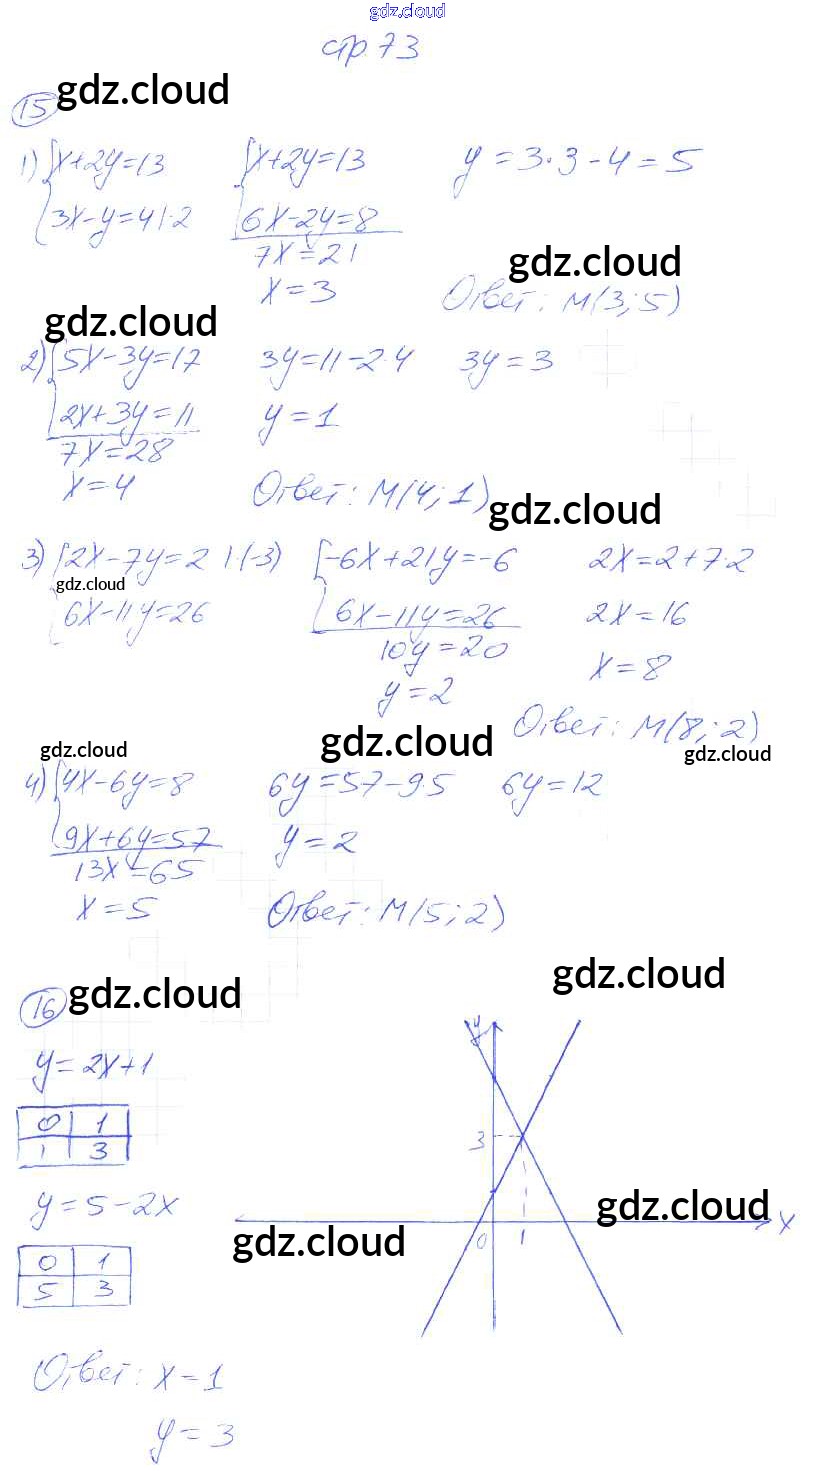 gdz.cloud
стр. 73
15 gdz.cloud
1) { x+2y=13    { x+2y=13    y = 3·3-4=5
3x-y=4 |·2    6x-2y=8
7x=21
gdz.cloud
x=3    Ответ: M(3;5)
gdz.cloud
2) { 5x-3y=17    3y=11-2·4    3y=3
2x+3y=11    y=1
7x=28
x=4    Ответ: M(4;1)
gdz.cloud
3) { 2x-7y=2 |·(-3)    { -6x+21y=-6    2x=2+7·2
gdz.cloud
6x-11y=26    6x-11y=26    2x=16
10y=20    x=8
y=2
Ответ: M(8;2)
gdz.cloud    gdz.cloud    gdz.cloud
4) { 4x-6y=8    6y=57-9·5    6y=12
9x+6y=57    y=2
13x=65
x=5    Ответ: M(5;2)
gdz.cloud
16 gdz.cloud
y
y=2x+1
0 1
1 3
3
y=5-2x
gdz.cloud
x
gdz.cloud
0 1
0 1
5 3
Ответ: x=1
y=3